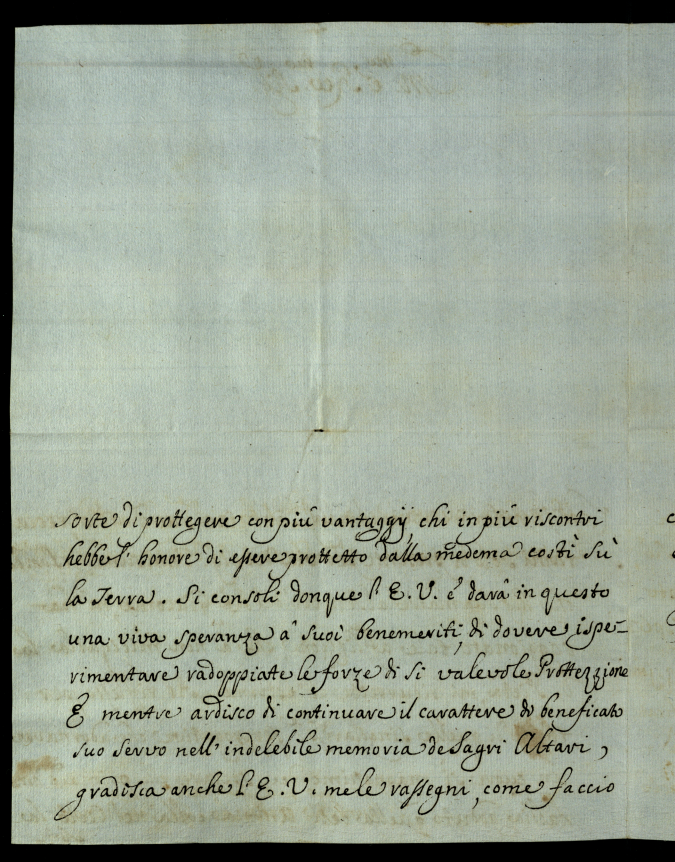 sorte di prottegere con più vantaggij, chi in più riscontri
hebbe l' honore di essere prottetto dalla medema costì sù
la Terra. Si consoli donque l' E. V. e darà in questo
una viva speranza a' suoi benemeriti, di dovere ispe-
rimentare radoppiate le forze di si valevole Prottezzione
E mentre ardisco di continuare il carattere di beneficato
suo servo nell' indelebile memoria de Sagri Altari,
gradisca anche l' E. V. me le rassegni, come faccio